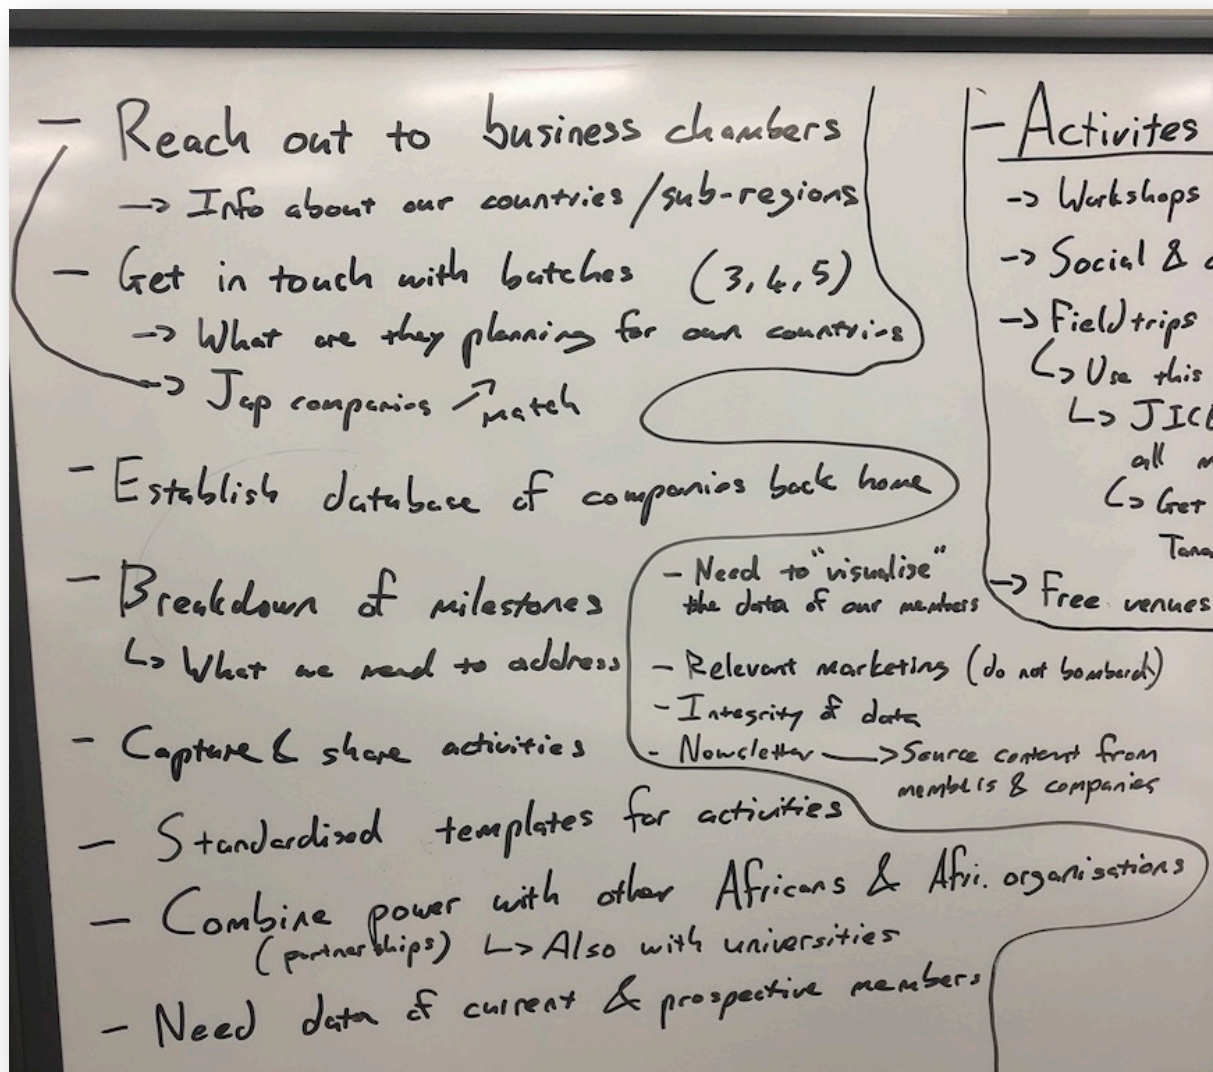 - Reach out to business chambers
-> Info about our countries/sub-regions
- Get in touch with batches (3, 4, 5)
-> What are they planning for our countries
-> Jap companies ↗ match
- Establish database of companies back home
- Breakdown of milestones
↳ What we need to address
- Capture & share activities
- Standardised templates for activities
- Combine power with other Africans & Afri. organisations
(partnerships) ↳ Also with universities
- Need data of current & prospective members
- Need to "visualise"
the data of our members
- Relevant marketing (do not bombard)
- Integrity of data
- Newsletter -> Source content from
members & companies
- Activites
-> Workshops
-> Social &
-> Field trips
↳ Use this
↳ JICE
all
↳ Get
-> Free venues